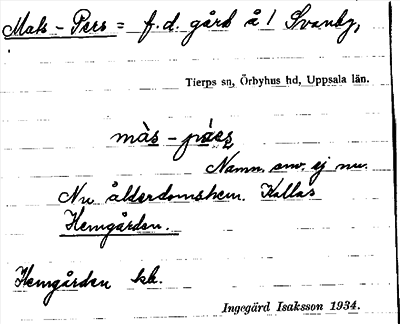 Mats-Pers = f.d. gård å 1 Svanby,
Tierps sn, Örbyhus hd, Uppsala län.
màs-pá̀ṣ
Namn. anv. ej nu.
Nu ålderdomshem. Kallas
Hemgården.
Hemgården kb.
Ingegärd Isaksson 1934.